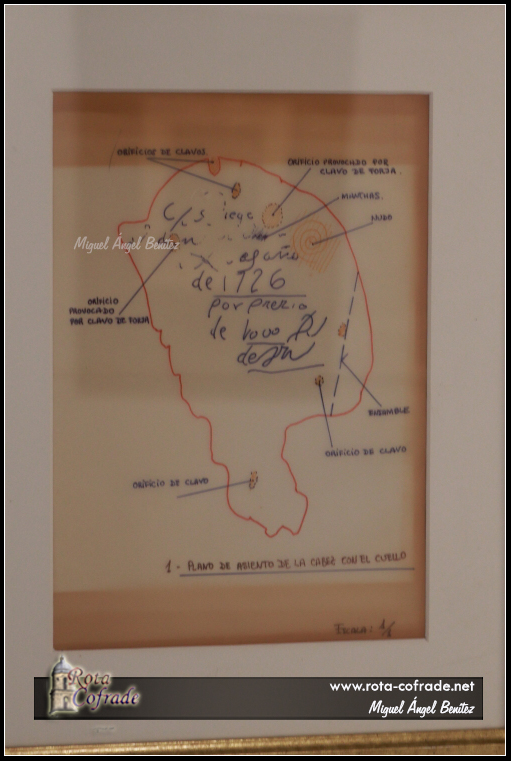 ORIFICIOS DE CLAVOS.
ORIFICIO PROVOCADO POR
CLAVO DE FORJA.
MANCHAS.
NUDO
C/S
Miguel Ángel Benítez
año
de 1726
por precio
de 1000
ORIFICIO
PROVOCADO
POR CLAVO DE FORJA
ENSAMBLE
ORIFICIO DE CLAVO
ORIFICIO DE CLAVO
1 - PLANO DE ASIENTO DE LA CABEZ CON EL CUELLO
ESCALA: 1/1
Rota
Cofrade
www.rota-cofrade.net
Miguel Ángel Benítez